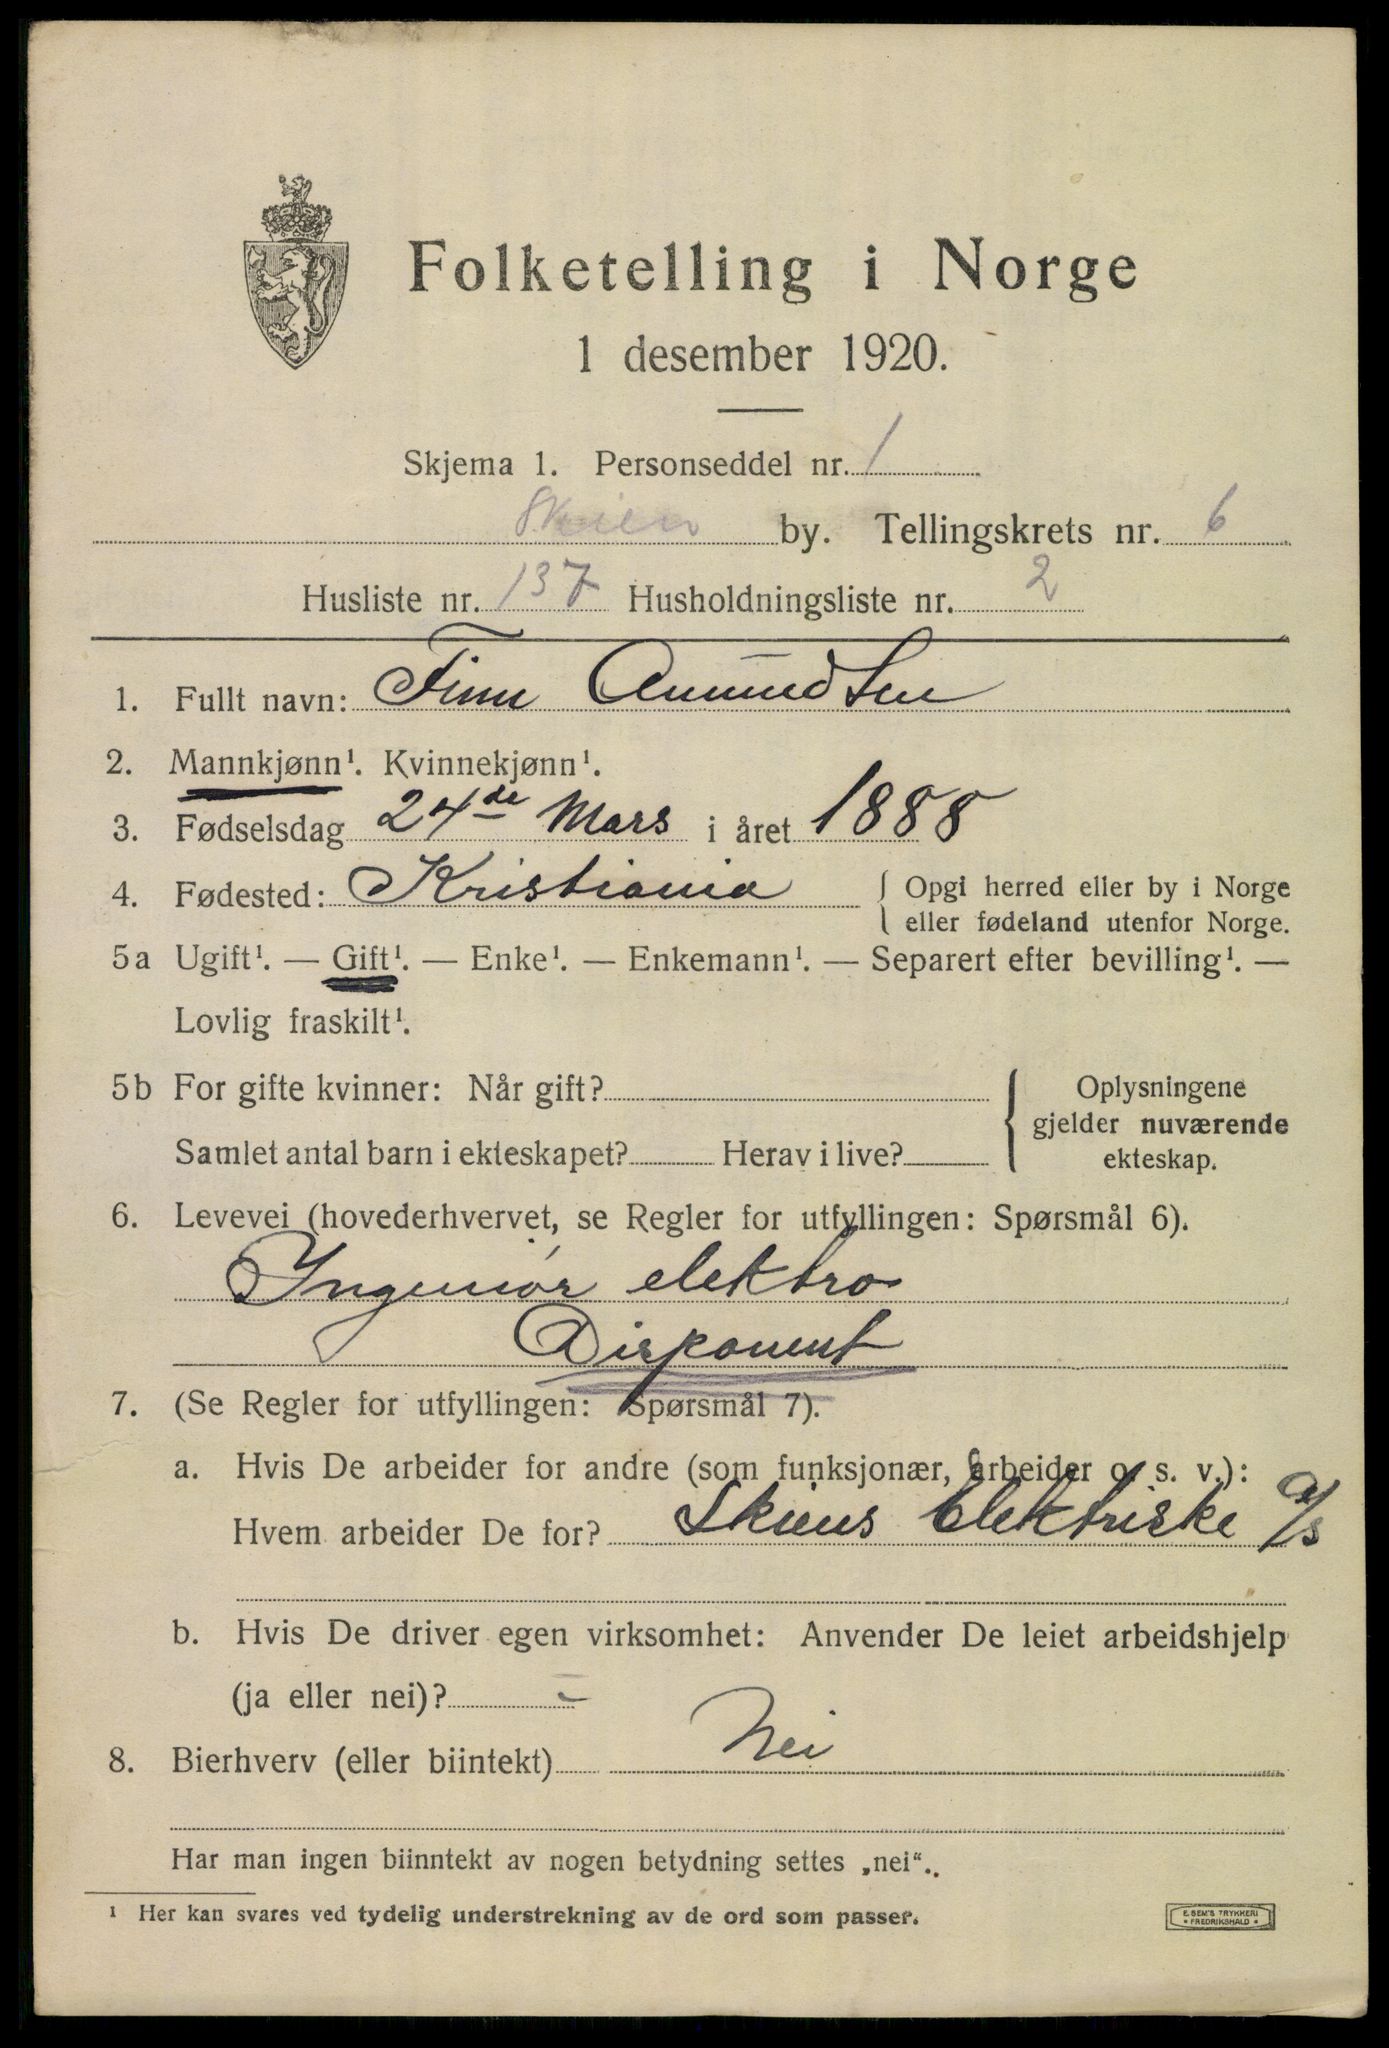 Folketelling i Norge
1 desember 1920.
Skjema 1. Personseddel nr. 1
Skien by. Tellingskrets nr. 6
Husliste nr. 137 Husholdningsliste nr. 2
1. Fullt navn: Finn Amundsen
2. Mannkjønn¹. Kvinnekjønn¹.
3. Fødselsdag 24de Mars i året 1888
4. Fødested: Kristiania { Opgi herred eller by i Norge
eller fødeland utenfor Norge.
5a Ugift¹. — Gift¹. — Enke¹. — Enkemann¹. — Separert efter bevilling¹. —
Lovlig fraskilt¹.
5b For gifte kvinner: Når gift? { Oplysningene
gjelder nuværende
Samlet antal barn i ekteskapet? Herav i live? ekteskap.
6. Levevei (hovederhvervet, se Regler for utfyllingen: Spørsmål 6).
Ingeniør elektro
Disponent
7. (Se Regler for utfyllingen: Spørsmål 7).
a. Hvis De arbeider for andre (som funksjonær, arbeider o. s. v.):
Hvem arbeider De for? Skiens Elektriske A/s
b. Hvis De driver egen virksomhet: Anvender De leiet arbeidshjelp
(ja eller nei)? –
8. Bierhverv (eller biintekt) Nei
Har man ingen biinntekt av nogen betydning settes „nei“.
¹ Her kan svares ved tydelig understrekning av de ord som passer.
E. SEM'S TRYKKERI
* FREDRIKSHALD *